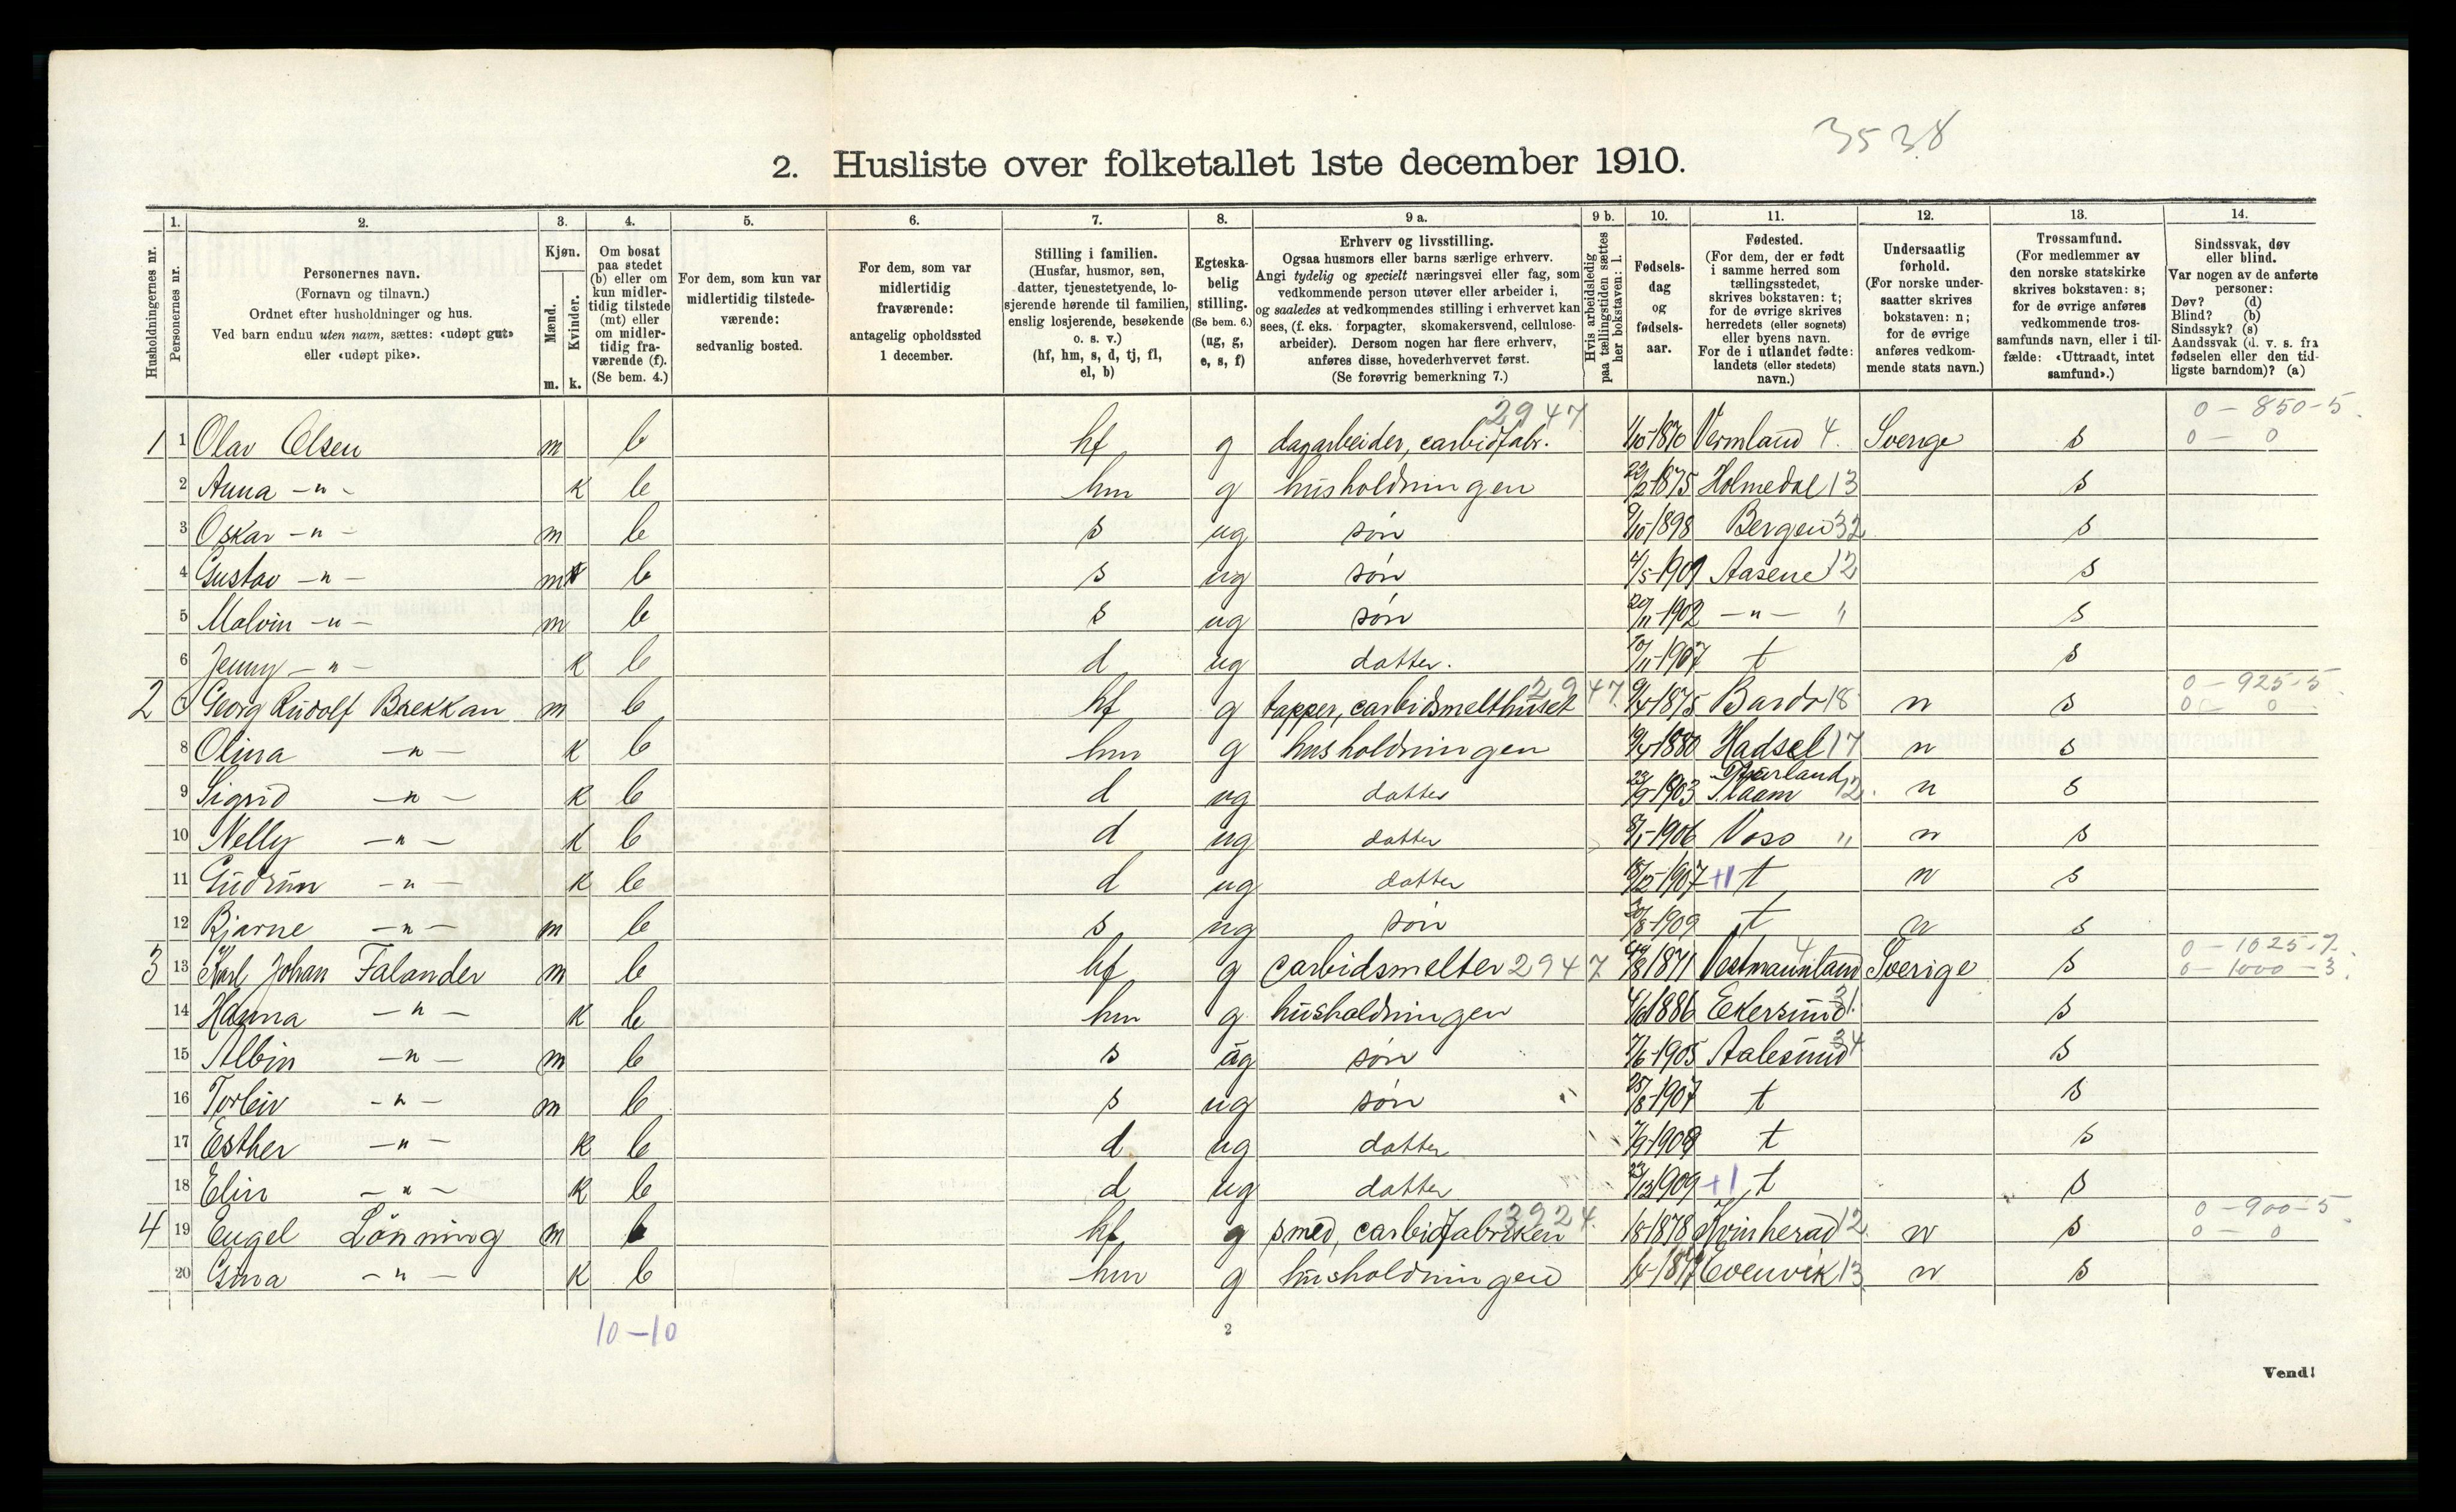 3538
2. Husliste over folketallet 1ste december 1910.
Husholdningernes nr.
1. Personernes nr.
2. Personernes navn.
(Fornavn og tilnavn.)
Ordnet efter husholdninger og hus.
Ved barn endnu uten navn, sættes: «udøpt gut»
eller «udøpt pike».
3. Kjøn.
Mænd. Kvinder.
m. k.
4. Om bosat
paa stedet
(b) eller om
kun midler-
tidig tilstede
(mt) eller
om midler-
tidig fra-
værende (f).
(Se bem. 4.)
5. For dem, som kun var
midlertidig tilstede-
værende:
sedvanlig bosted.
6. For dem, som var
midlertidig
fraværende:
antagelig opholdssted
1 december.
7. Stilling i familien.
(Husfar, husmor, søn,
datter, tjenestetyende, lo-
sjerende hørende til familien,
enslig losjerende, besøkende
o. s. v.)
(hf, hm, s, d, tj, fl,
el, b)
8. Egteska-
belig
stilling.
(Se bem. 6.)
(ug, g,
e, s, f)
9 a. Erhverv og livsstilling.
Ogsaa husmors eller barns særlige erhverv.
Angi tydelig og specielt næringsvei eller fag, som
vedkommende person utøver eller arbeider i,
og saaledes at vedkommendes stilling i erhvervet kan
sees, (f. eks. forpagter, skomakersvend, cellulose-
arbeider). Dersom nogen har flere erhverv,
anføres disse, hovederhvervet først.
(Se forøvrig bemerkning 7.)
9 b. Hvis arbeidsledig
paa tællingstiden sættes
her bokstaven: l.
10. Fødsels-
dag
og
fødsels-
aar.
11. Fødested.
(For dem, der er født
i samme herred som
tællingsstedet,
skrives bokstaven: t;
for de øvrige skrives
herredets (eller sognets)
eller byens navn.
For de i utlandet fødte:
landets (eller stedets)
navn.)
12. Undersaatlig
forhold.
(For norske under-
saatter skrives
bokstaven: n;
for de øvrige
anføres vedkom-
mende stats navn.)
13. Trossamfund.
(For medlemmer av
den norske statskirke
skrives bokstaven: s;
for de øvrige anføres
vedkommende tros-
samfunds navn, eller i til-
fælde: «Uttraadt, intet
samfund».)
14. Sindssvak, døv
eller blind.
Var nogen av de anførte
personer:
Døv? (d)
Blind? (b)
Sindssyk? (s)
Aandssvak (d. v. s. fra
fødselen eller den tid-
ligste barndom)? (a)
2947 0 - 850-5.
1 1 Olav Olsen m b hf g dagarbeider, carbidfabr. 1/10-1870 Vermland 4. Sverige s 0 - 0
2 Anna -"- k b hm g husholdningen 22/2 1875 Holmedal 13 s
3 Oskar -"- m b s ug søn 9/10-1898 Bergen 32 s
4 Gustav -"- m b s ug søn 4/5-1901 Aasene 12 s
5 Malvin -"- m b s ug søn 20/11-1902 -"- " s
6 Jenny -"- k b d ug datter. 10/11-1907 t s
2947. 0 - 925-5
2 7 Georg Rudolf Brekkan m b hf g tapper, carbidsmelthuset 9/4-1875 Bardo 18 n s 0 - 0
8 Olina -"- k b hm g husholdningen 10/4-1880 Hadsel 17 n s
9 Sigrid -"- k b d ug datter 22/9-1903 Flaam 12. n s
10 Nelly -"- k b d ug datter 8/1-1906 Voss " n s
11 Gudrun -"- k b d ug datter 18/12-1907 +1 t n s
12 Bjarne -"- m b s ug søn 30/8-1909 t n s
0 - 1025-7.
3 13 Karl Johan Falander m b hf g carbidsmelter 2947 1871 Vestmannland 4 Sverige s 0 - 1000 - 3.
14 Hanna -"- k b hm g husholdningen 4/6 1886 Ekersund 31. s
15 Albin -"- m b s ug søn 7/6-1905 Aalesund 34 s
16 Torleiv -"- m b s ug søn 25/8-1907 t s
17 Esther -"- k b d ug datter 7/9-1908 t s
18 Elin -"- k b d ug datter 23/12 1909 +1 t s
2924. 0 - 900-5
4 19 Engel Lönning m b hf g smed, carbidfabriken 1/8-1878 Kvinherad 12. n s 0 - 0
20 Gina -"- k b hm g husholdningen Evenvik 13 n s
10-10
2
Vend!